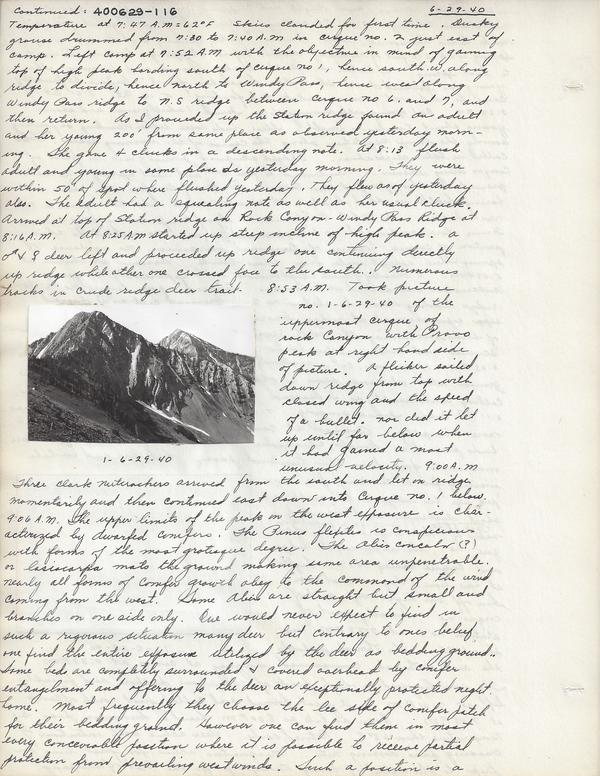 Continued: 400629-116 6-29-40
Temperature at 7:47 A.M = 62°F Skies clouded for first time. Dusky
grouse drummed from 7:30 to 7:40 A.M in cirque no. 2 just east of
camp. Left camp at 7:52 A.M with the objective in mind of gaining
top of high peak boarding south of cirque no 1, hence south.W. along
ridge to divide, hence north to Windy Pass, hence west along
Windy Pass ridge to N.S ridge between cirque no 6. and 7, and
then return. As I proceeded up the Station ridge found an adult
and her young 200' from same place as observed yesterday morn-
ing. She gave 4 clucks in a descending note. At 8:13 flush
adult and young in same place as yesterday morning. They were
within 50' of spot where flushed yesterday. They flew as of yesterday
also. The adult had a squealing note as well as her usual cluck.
Arrived at top of Station ridge on Rock Canyon-Windy Pass Ridge at
8:16 A.M. At 8:25 AM started up steep incline of high peak. a
♂ & ♀ deer left and proceeded up ridge one continuing directly
up ridge while other one crossed face to the south. Numerous
tracks in crude ridge deer trail. 8:53 A.M. Took picture
no. 1-6-29-40 of the
uppermost cirque of
rock Canyon with Provo
peak at right hand side
of picture. A flicker sailed
down ridge from top with
closed wing and the speed
of a bullet. nor did it let
up until far below when
it had gained a most
unusual velocity. 9:00 A.M
1-6-29-40
Three clark nutcrackers arrived from the south and let on ridge
momentarily and then continued east down into Cirque no. 1 below.
9:06 A.M. The upper limits of the peak on the west exposure is char-
acterized by dwarfed conifers. The Pinus flexilis is conspicuous
with forms of the most grotesque degree. The Abies concolor (?)
or lasiocarpa mats the ground making some area unpenetrable.
nearly all forms of conifer growth obey to the command of the wind
coming from the west. Some Abies are straight but small and
branches on one side only. One would never expect to find in
such a rigorous situation many deer but contrary to ones belief
one find the entire exposure utilized by the deer as bedding ground.
Some beds are completely surrounded & covered overhead by conifer
entanglement and offering to the deer an exceptionally protected night
home. Most frequently they choose the lee side of conifer patch
for their bedding ground. However one can find them in most
every conceivable position where it is possible to receive partial
protection from prevailing west winds. Such a position is a